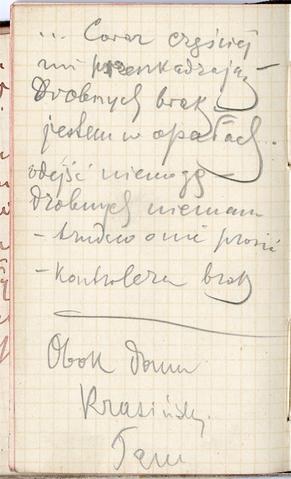 ... Coraz częściej
mi przeszkadzają
Drobnych brak
jestem w opałach...
odejść niemogę -
drobnych niemam
- trudno o nie prosić
- Kontrolera brak
Obok domu
Krasińsky.
Tam